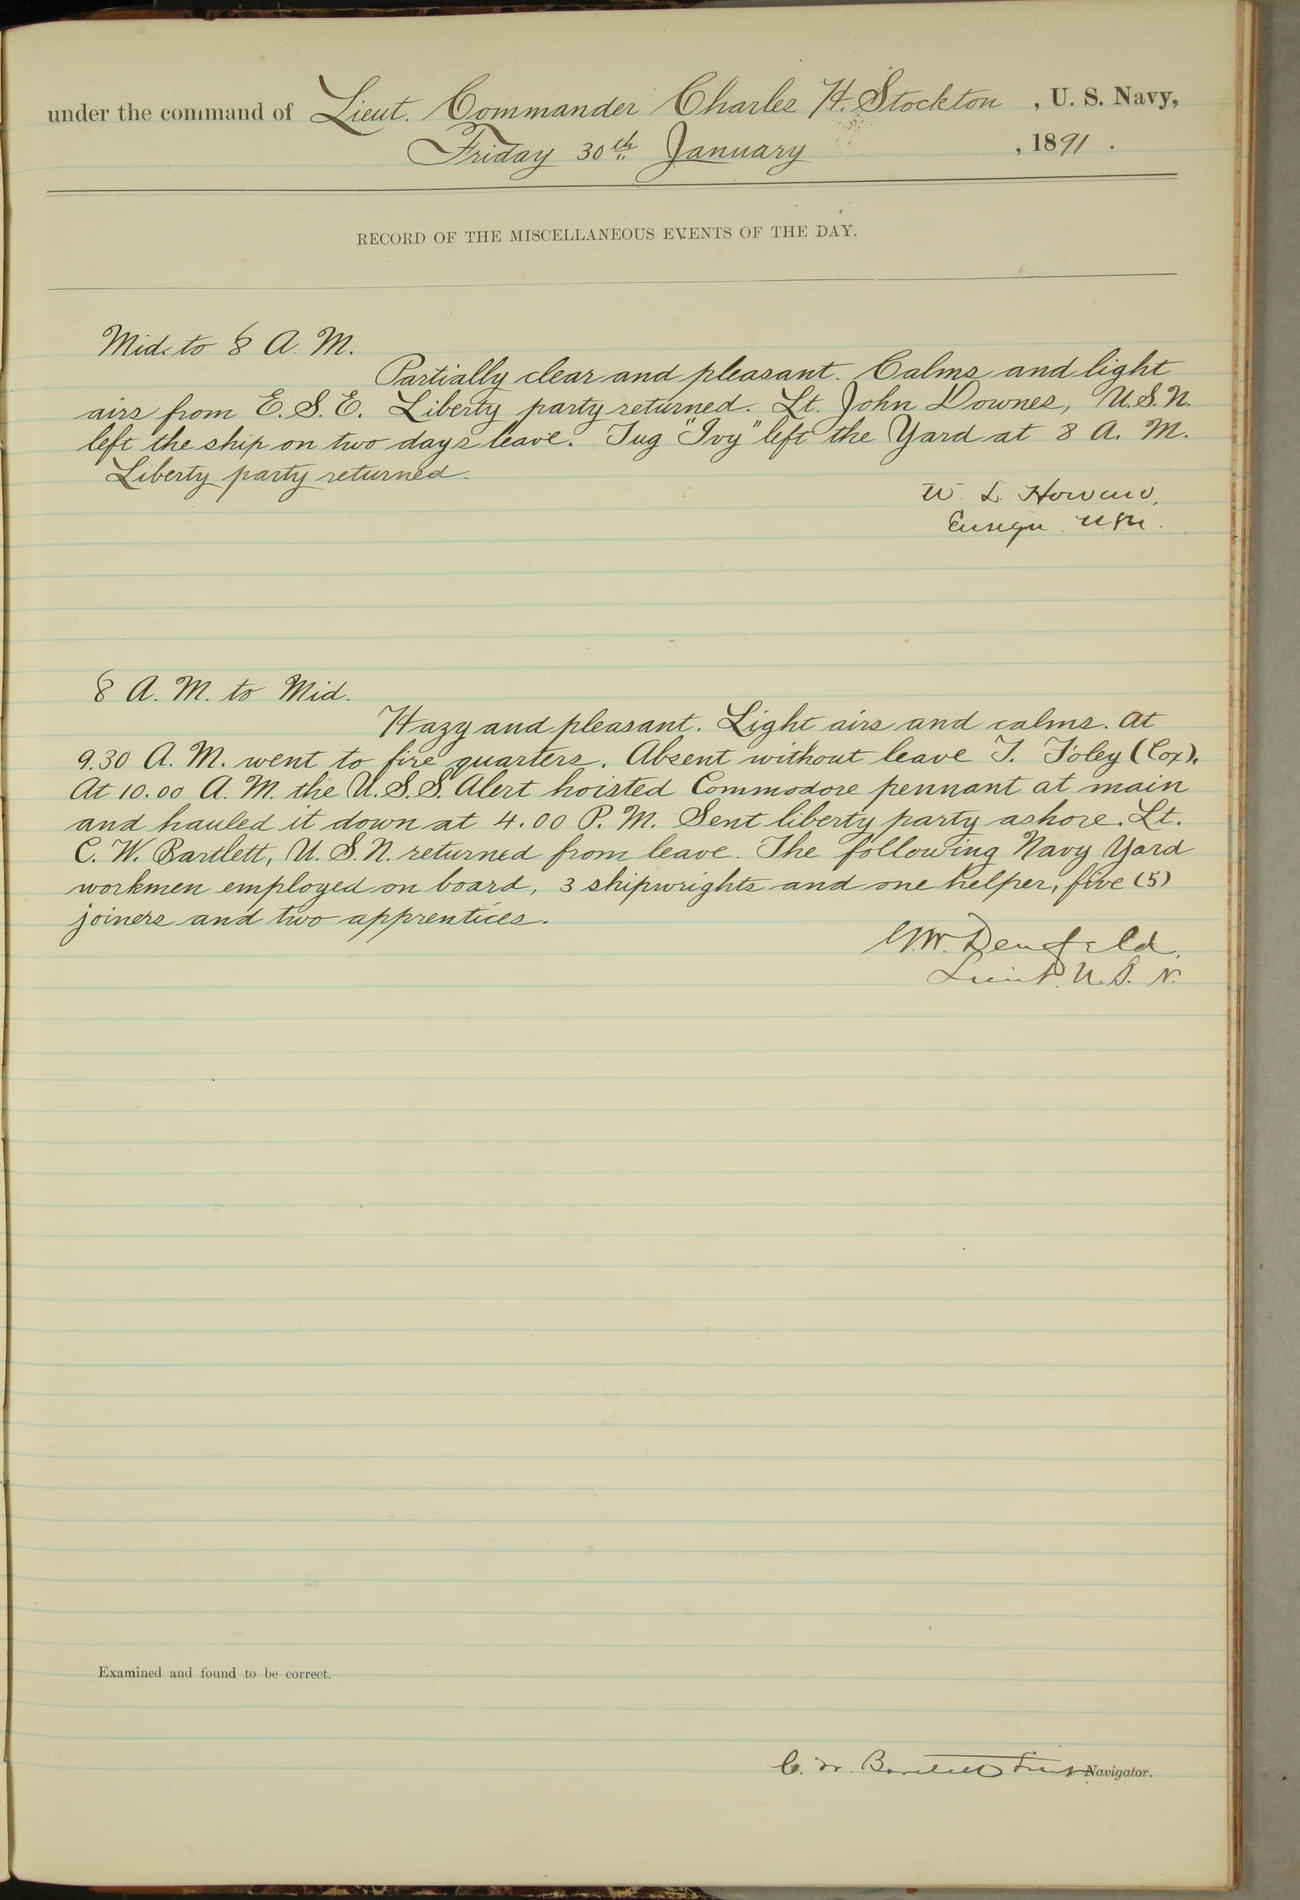 under the command of Lieut. Commander Charles H. Stockton, U. S. Navy,
Friday 30th January, 1891.
RECORD OF THE MISCELLANEOUS EVENTS OF THE DAY.
Mid. to 8 A. M.
Partially clear and pleasant. Calms and light
airs from E. S. E. Liberty party returned. Lt. John Downes, U.S.N.
left the ship on two days leave. Tug "Ivy" left the Yard at 8 A. M.
Liberty party returned.
W. L. Howard,
Ensign U.S.N.
8 A. M. to Mid.
Hazy and pleasant. Light airs and calms. At
9.30 A. M. went to fire quarters. Absent without leave T. Foley (Cox).
At 10.00 A. M. the U.S.S. Alert hoisted Commodore pennant at main
and hauled it down at 4.00 P. M. Sent liberty party ashore. Lt.
C. W. Bartlett, U. S. N. returned from leave. The following Navy Yard
workmen employed on board, 3 shipwrights and one helper, five (5)
joiners and two apprentices.
G. W. Denfeld,
Lieut. U. S. N.
Examined and found to be correct.
C. W. Bartlett Lieut Navigator.